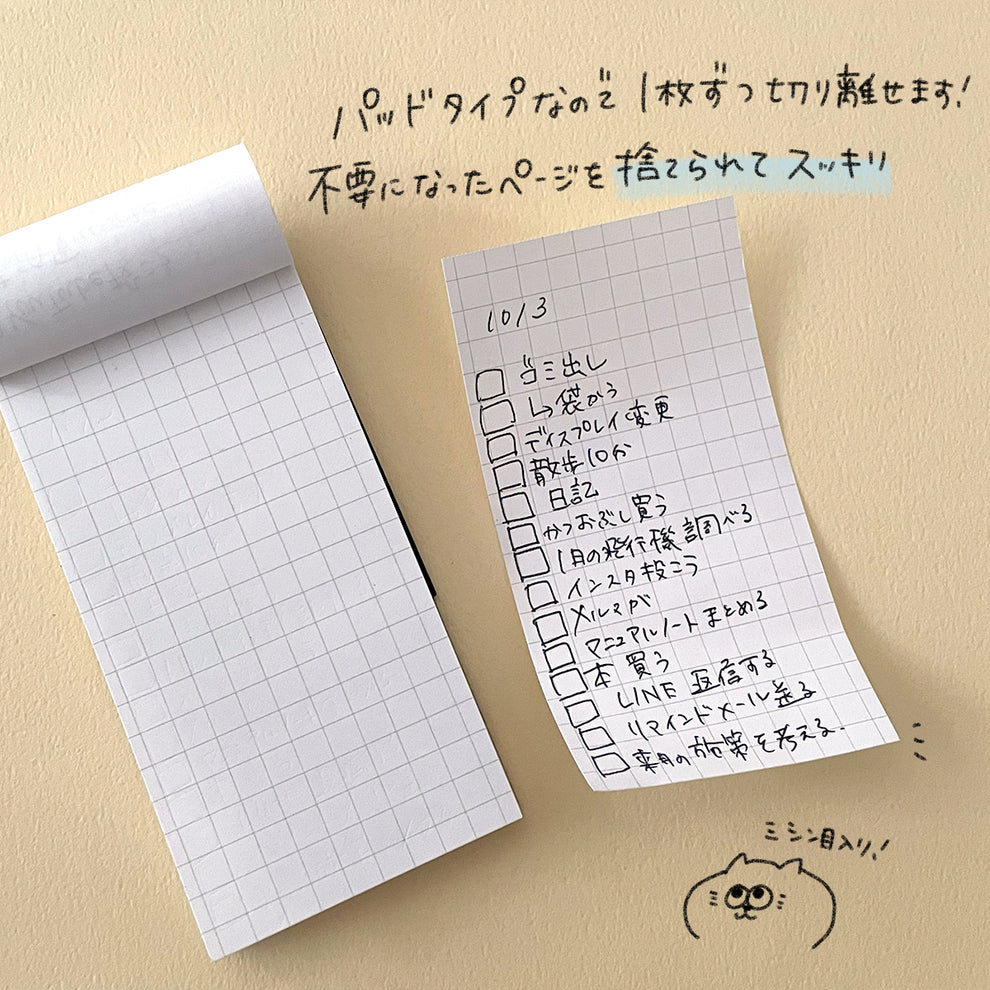 パッドタイプなので1枚ずつ切り離せます!
不要になったページを捨てられてスッキリ
10/3
ゴミ出し
↳袋かう
ディスプレイ変更
散歩10分
日記
かつおぶし買う
1月の飛行機調べる
インスタ投こう
メルマが
マニュアルノートまとめる
本買う
LINE 返信する
リマインドメール送る
来月の施策を考える.
ミシン目入り!